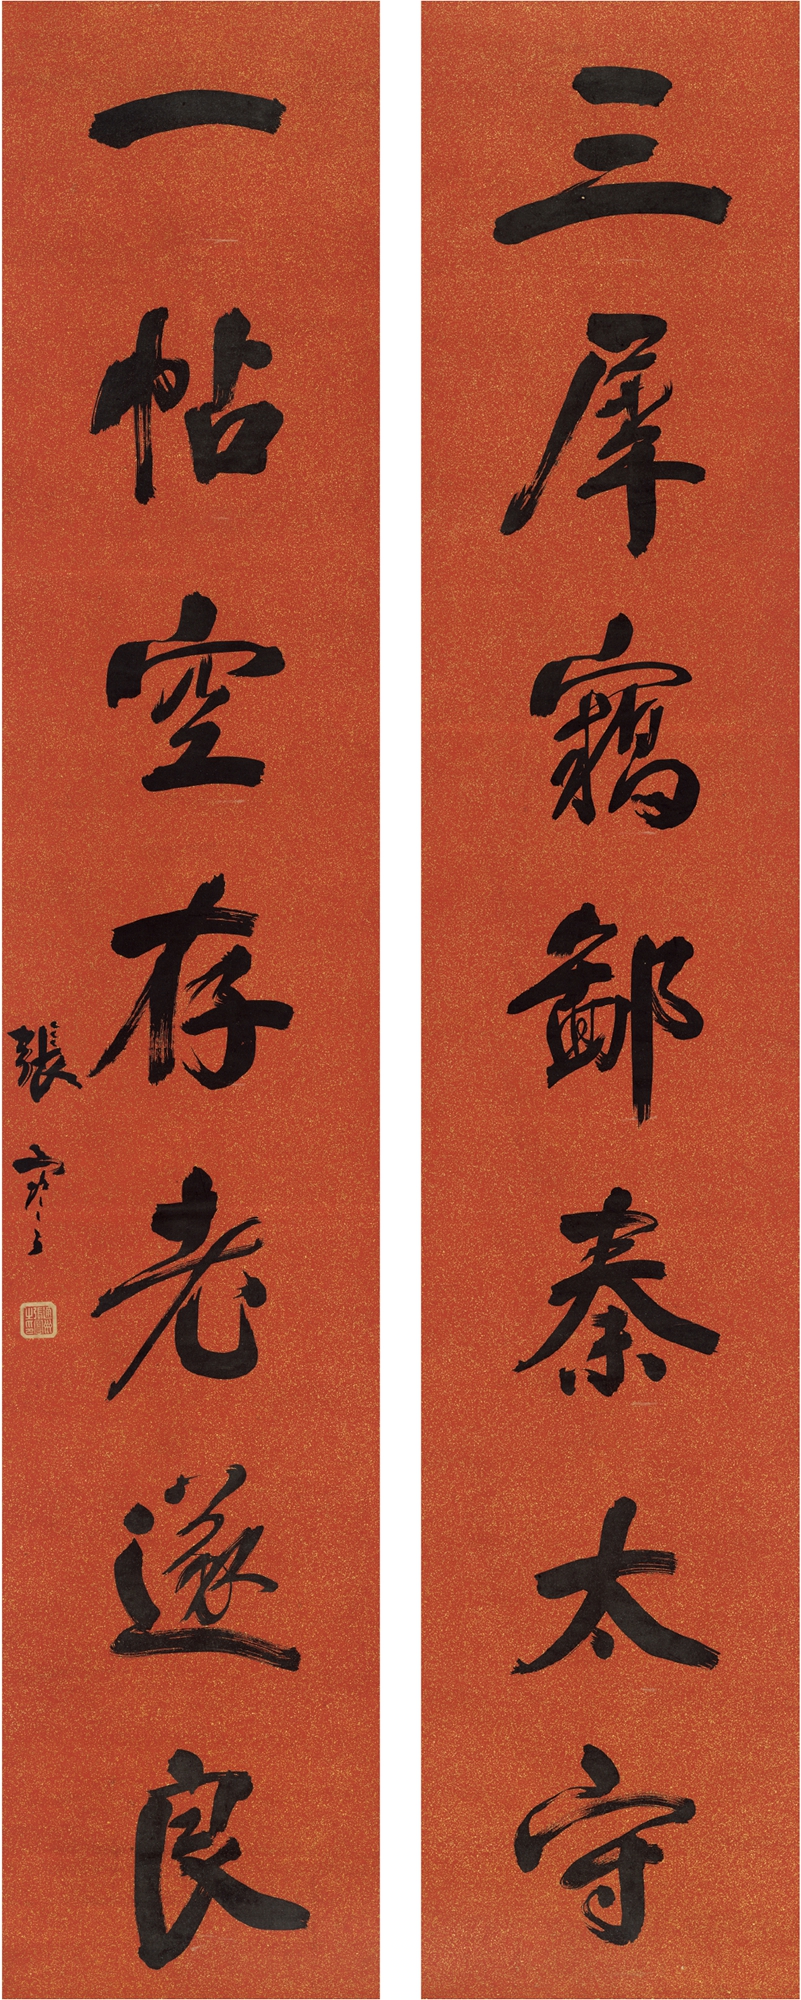 三犀竊鄙秦太守
一帖空存老遂良
張謇